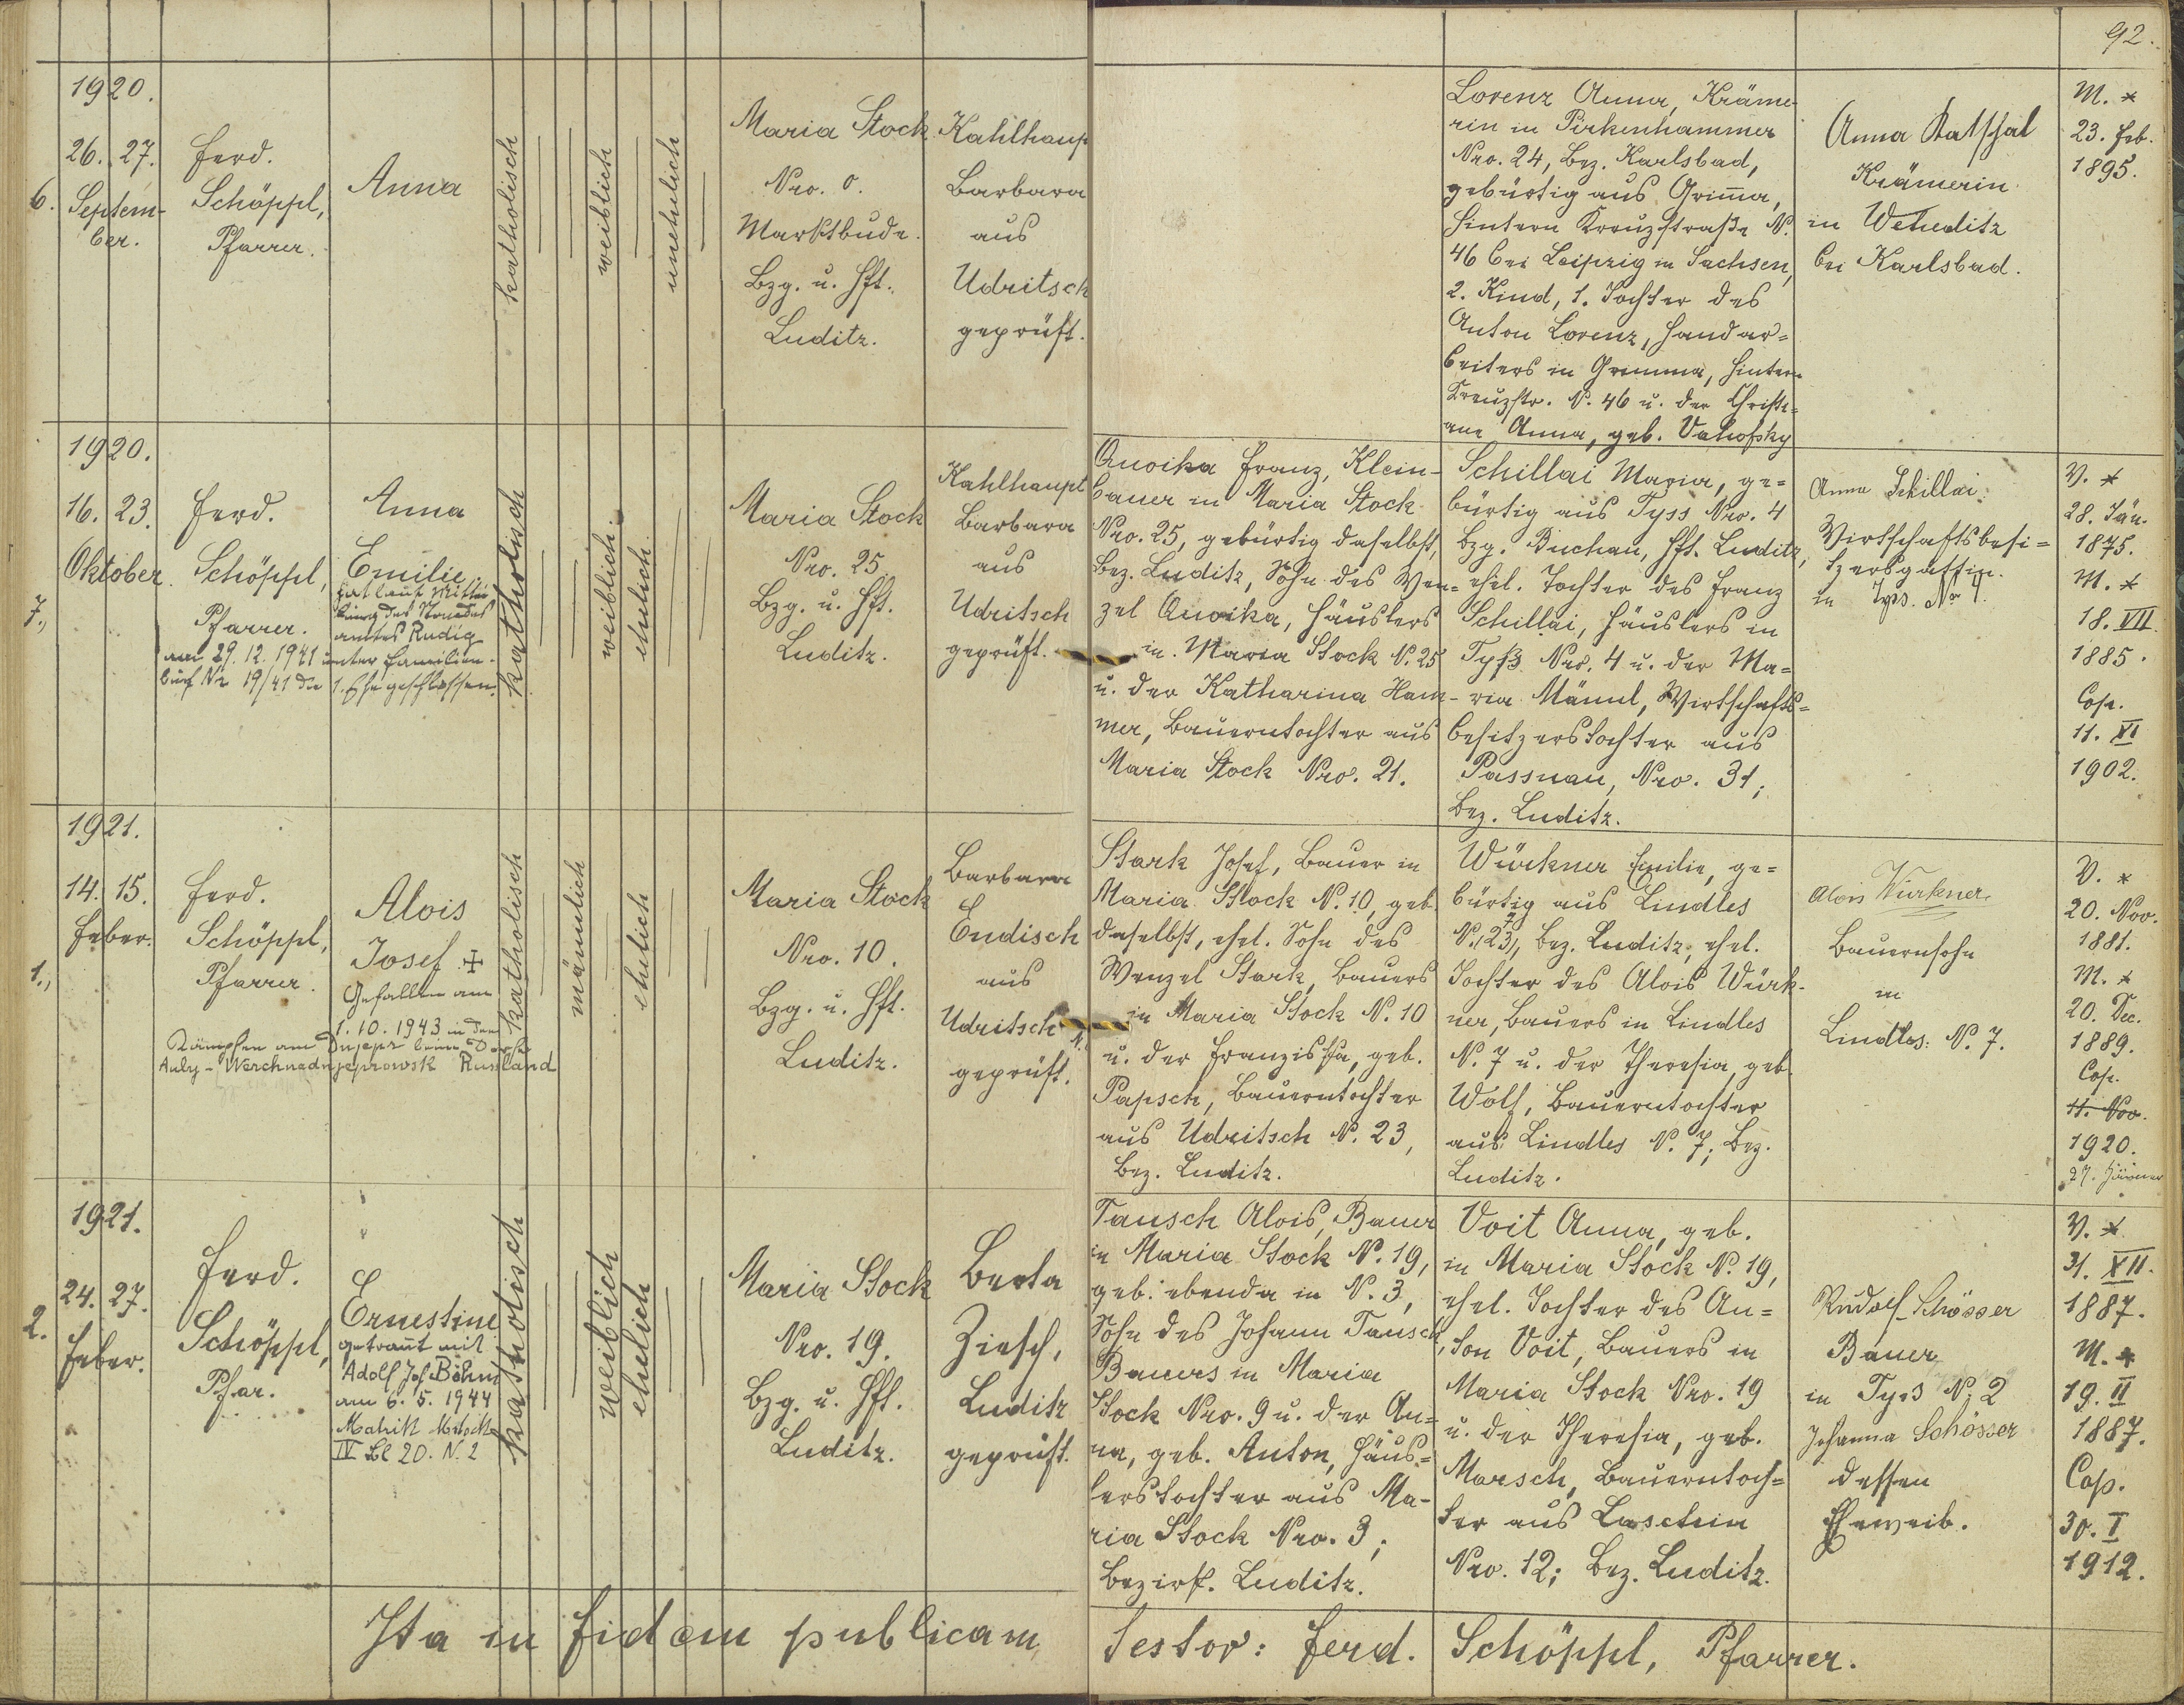 92.
1920.
6.
26. 27.
Septem-
ber.
Ferd.
Schöppl,
Pfarrer.
Anna
katholisch
weiblich
unehelich
Maria Stock
Nro. 0.
Marktbude.
Bzg. u. Hft.
Luditz.
Kahlhaup
Barbara
aus
Udritsch
geprüft.
Lorenz Anna, Kräme-
rin in Pirkenhammer
Nro. 24, Bez. Karlsbad,
gebürtig aus Grim̅a,
Hintern Kreuzstraße N.
46 bei Leipzig in Sachsen,
2. Kind, 1. Tochter des
Anton Lorenz, Handar=
beiters in Grimma, Hintern
Kreuzstr. N. 46 u. der Christi=
ane Anna, geb.
Anna
Krämerin
in Weheditz
bei Karlsbad.
M. *
23. Feb.
1895.
1920.
7.,
16. 23.
Oktober.
Ferd.
Schöppl,
Pfarrer.
Anna
Emilie.
hat laut Mittei
lung des Standes
amtes Rudig
am 29. 12. 1941 unter Familien-
buch Nr 19/41 die 1. Ehe geschlossen.
katholisch
weiblich
ehelich.
Maria Stock
Nro. 25.
Bzg. u. Hft.
Luditz.
Kahlhaupt
Barbara
aus
Udritsch
geprüft.
Franz, Klein-
bauer in Maria Stock
Nro. 25, gebürtig daselbst,
Bez. Luditz, Sohn des Wen=
zel Häuslers
in Maria Stock N. 25
u. der Katharina Ham-
mer, Bauerntochter aus
Maria Stock Nro. 21.
Schillai Maria, ge=
bürtig aus Tyss Nro. 4
Bzg. Buchau, Hft. Luditz,
ehel. Tochter des Franz
Schillai, Häuslers in
Tyß Nro. 4 u. der Ma=
ria Männl, Wirtschafts=
besitzerstochter aus
Passnau, Nro. 31;
Bez. Luditz.
Anna Schillai
Wirtschaftsbesi=
tzersgattin.
in Tyss. No 4.
V. *
28. Jän.
1875.
M. *
18. VII.
1885.
Cop.
11. XI
1902.
1921.
1.,
14. 15.
Feber.
Ferd.
Schöppl,
Pfarrer.
Alois
Josef ✠
Gefallen am
1. 10. 1943 in den
Kämpfen am Dnjepr beim Dorfe
Auly - Werchnadnjeprowsk Russland
katholisch
männlich
ehelich
Maria Stock
Nro. 10.
Bzg. u. Hft.
Luditz.
Barbara
Endisch
aus
Udritsch
geprüft.
Stark Josef, Bauer in
Maria Stock N. 10, geb.
daselbst, ehel. Sohn des
Wenzel Stark, Bauers
in Maria Stock N. 10
u. der Franziska, geb.
Papsch, Bauerntochter
aus Udritsch N. 23,
Bez. Luditz.
Würkner Emilie, ge=
bürtig aus Lindles
N. 23, 7 Bez. Luditz, ehel.
Tochter des Alois Würk-
ner, Bauers in Lindles
N. 7 u. der Theresia, geb.
Wolf, Bauerntochter
aus Lindles N. 7; Bez.
Luditz.
Alois Würkner
Bauernsohn
in
Lindles: N. 7.
V. *
20. Nov.
1881.
M. *
20. Dec.
1889.
Cop.
11. Nov.
1920.
27. Jänner
1921.
2.
24. 27.
Feber.
Ferd.
Schöppl,
Pfar.
Ernestine
getraut mit
Adolf Jos Böhm
am 6. 5. 1944
Matrik
IV Bl 20. N. 2
katholisch
weiblich
ehelich
Maria Stock
Nro. 19.
Bzg. u. Hft.
Luditz.
Berta
Ziesch,
Luditz
geprüft.
Tausch Alois, Bauer
in Maria Stock N. 19,
geb. ebenda in N. 3,
Sohn des Johann Tausch,
Bauers in Maria
Stock Nro. 9 u. der An=
na, geb. Anton, Häus=
lerstochter aus Ma-
ria Stock Nro. 3;
Bezirk. Luditz.
Voit Anna, geb.
in Maria Stock N. 19,
ehel. Tochter des An=
ton Voit, Bauers in
Maria Stock Nro. 19
u. der Theresia, geb.
Marsch, Bauerntoch=
ter aus Luschtin
Nro. 12; Bez. Luditz.
Rudolf Schösser
Bauer
in Tyss N. 2
Johanna Schösser
dessen
Eheweib.
V. *
31. XII.
1887.
M. *
19. II
1887.
Cop.
30. I
1912.
Ita in fidem publicam,
Testor: Ferd. Schöppl, Pfarrer.